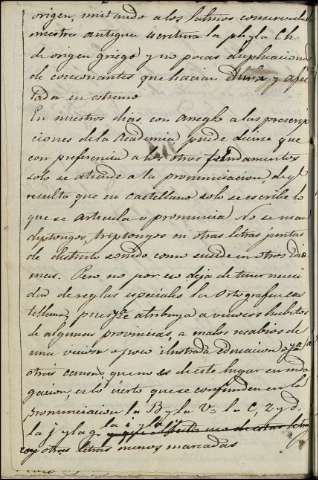 origen, imitando a los latinos conservaba
nuestra antigua escritura la ph y la Ch.
de origen griego y no pocas duplicaciones
de consonantes que hacian dura y
en estremo
En nuestros dias con arreglo a las prescrip
ciones de la Academia puede decirse que
con preferencia a los otros fundamentos
solo se atiende a la pronunciacion, de
resulta que en castellano solo se escribe lo
que se articula o pronuncia. No se usan
diptongos, triptongos ni otras letras juntas
de distinto sonido como sucede en otros
mas. Pero no por eso deja de tener necesi
dad de reglas especiales la Ortografia cas
tellana, pues atribuya a viciosos habitos
de algunas provincias, a malos resabios de
una viciosa o poco ilustrada educacion o
otras causas, que no es de este lugar su indi
gacion, es lo cierto que se confunden en la
pronunciacion la B y la V, la C, Z y
la j y la g, la i y la
y otras letras menos marcadas